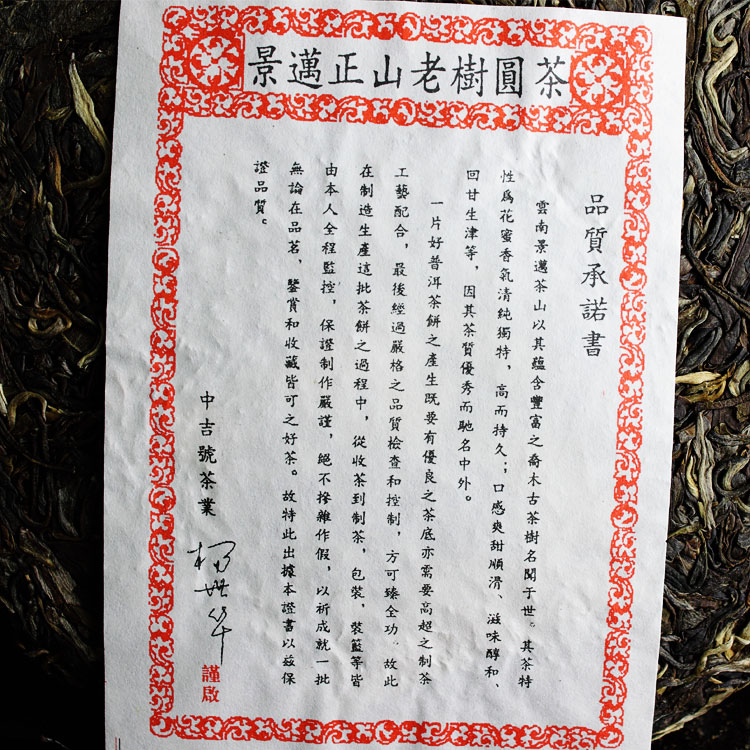 景邁正山老樹圓茶
品質承諾書
雲南景邁茶山以其蘊含豐富之喬木古茶樹名聞于世。其茶特
性爲花蜜香氣清純獨特，高而持久；口感爽甜順滑、滋味醇和、
回甘生津等，因其茶質優秀而馳名中外。
一片好普洱茶餅之產生既要有優良之茶底亦需要高超之制茶
工藝配合，最後經過嚴格之品質檢查和控制，方可臻全功。故此
在制造生產這批茶餅之過程中，從收茶到制茶，包裝，裝籃等皆
由本人全程監控，保證制作嚴謹，絕不摻雜作假，以祈成就一批
無論在品茗，鑒賞和收藏皆可之好茶。故特此出據本證書以茲保
證品質。
中吉號茶業
謹啟